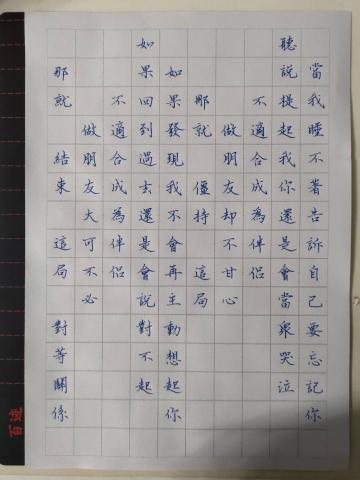 當我睡不著告訴自己要忘記你
聽說提起我你還是會當眾哭泣
不適合成為伴侶
做朋友卻不甘心
那就僵持這局
如果發現我不會再主動想起你
如果回到過去還是會說對不起
不適合成為伴侶
做朋友大可不必
那就結束這局對等關係